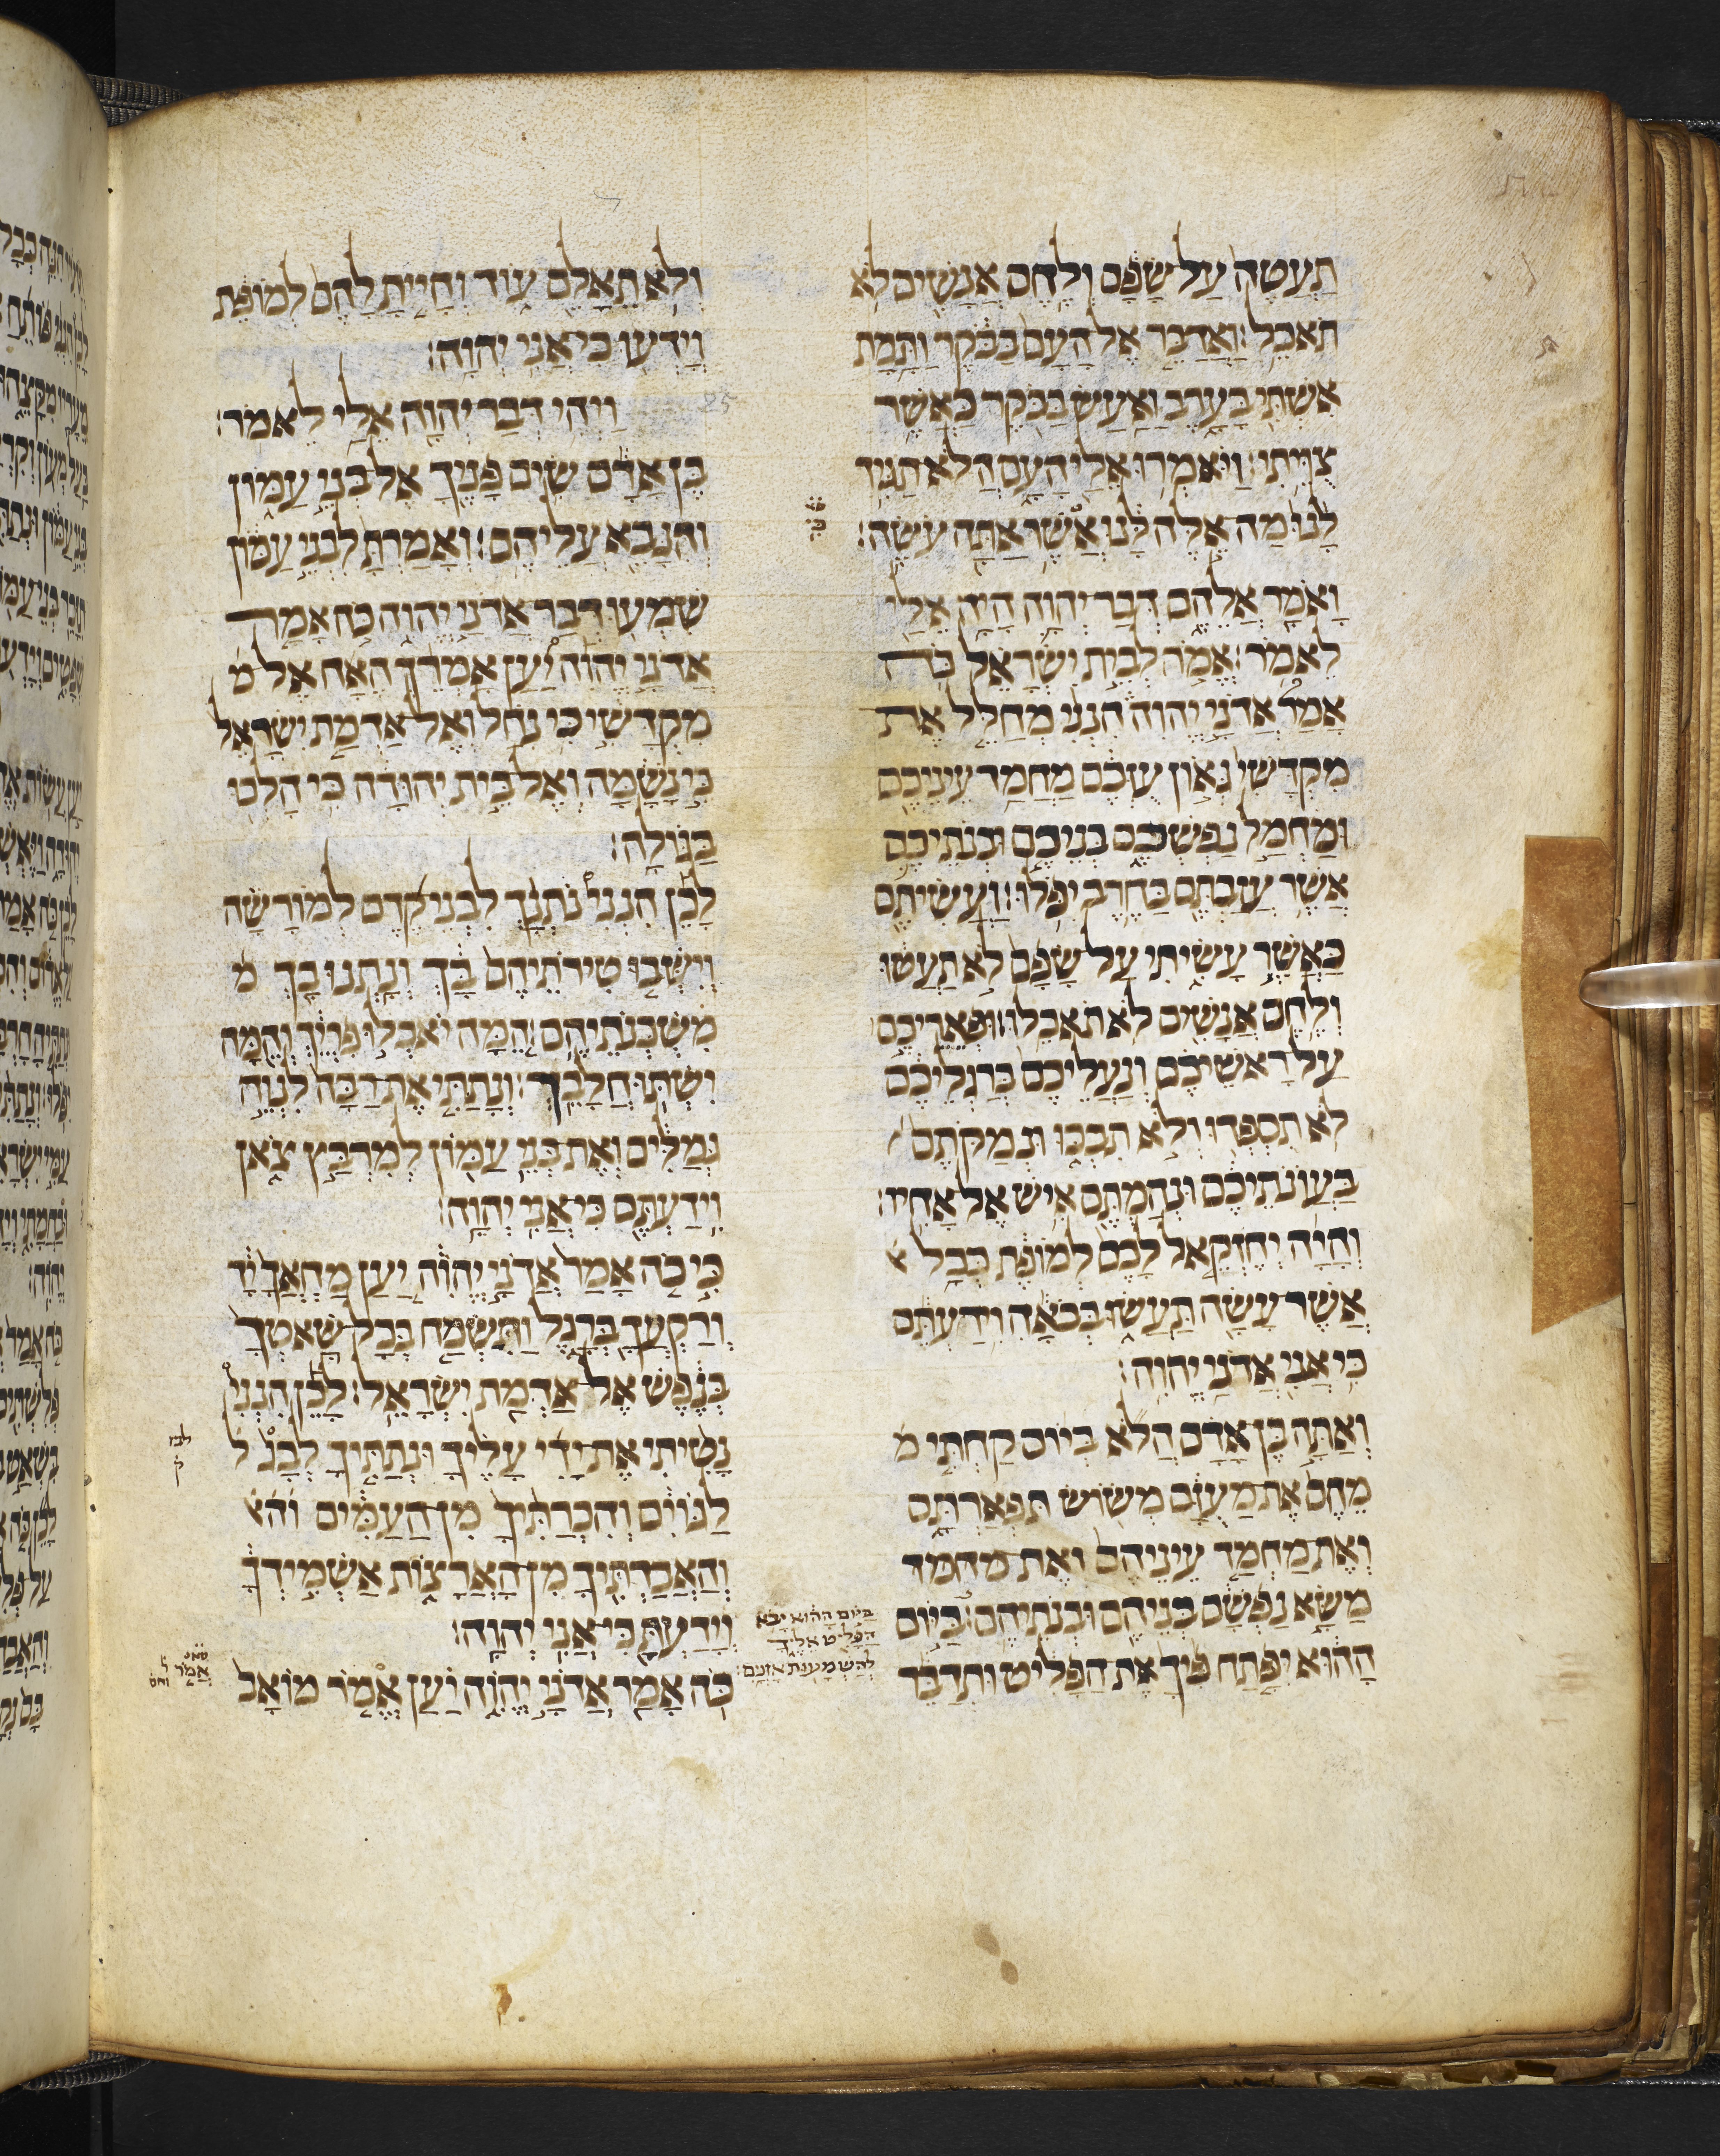 תעטה על שפם ולחם אנשים לא
תאכל: ואדבר אל העם בבקר ותמת
אשתי בערב ואעש בבקר כאשר
צויתי: ויאמרו אלי העם הלא תגיד
לנו מה אלה לנו אשר אתה עשה:
ואמר אליהם דבר יהוה היה אלי
לאמר: אמר לבית ישראל כה
אמר אדני יהוה הנני מחלל את
מקדשי גאון עזכם מחמד עיניכם
ומחמל נפשכם בניכם ובנתיכם
אשר עזבתם בחרב יפלו: ועשיתם
כאשר עשיתי על שפם לא תעטו
ולחם אנשים לא תאכלו: ופאריכם
על ראשיכם ונעליכם ברגליכם
לא תספדו ולא תבכו ונמקתם
בעונתיכם ונהמתם איש אל אחיו:
והיה יחזקאל לכם למופת ככל
אשר עשה תעשו בבאה וידעתם
כי אני אדני יהוה:
ואתה בן אדם הלא ביום קחתי מ
מהם את מעזם משוש תפארתם
ואת מחמד עיניהם ואת מחמד
משא נפשם בניהם ובנתיהם: ביום
ההוא יפתח פיך את הפליט ותדבר
ביום ההוא יבא
הפליט אליך
להשמעות אזנים:
ולא תאלם עוד והיית להם למופת
וידעו כי אני יהוה:
25
ויהי דבר יהוה אלי לאמר:
בן אדם שים פניך אל בני עמון
והנבא עליהם: ואמרת לבני עמון
שמעו דבר אדני יהוה כה אמר
אדני יהוה יען אמרך האח אל מ
מקדשי כי נחל ואל אדמת ישראל
כי נשמה ואל בית יהודה כי הלכו
בגולה:
לכן הנני נתנך לבני קדם למורשה
וישבו טירתיהם בך ונתנו בך מ
משכנתיהם המה יאכלו פריך והמה
ישתו חלבך: ונתתי את רבה לנוה
גמלים ואת בני עמון למרבץ צאן
וידעתם כי אני יהוה:
כי כה אמר אדני יהוה יען מחאך יד
ורקעך ברגל ותשמח בכל שאטך
בנפש אל אדמת ישראל: לכן הנני
נטיתי את ידי עליך ונתתיך לבג ל
לגוים והכרתיך מן העמים והא
והאבדתיך מן הארצות אשמידך
וידעת כי אני יהוה:
כה אמר אדני יהוה יען אמר מואב
לבז
ק